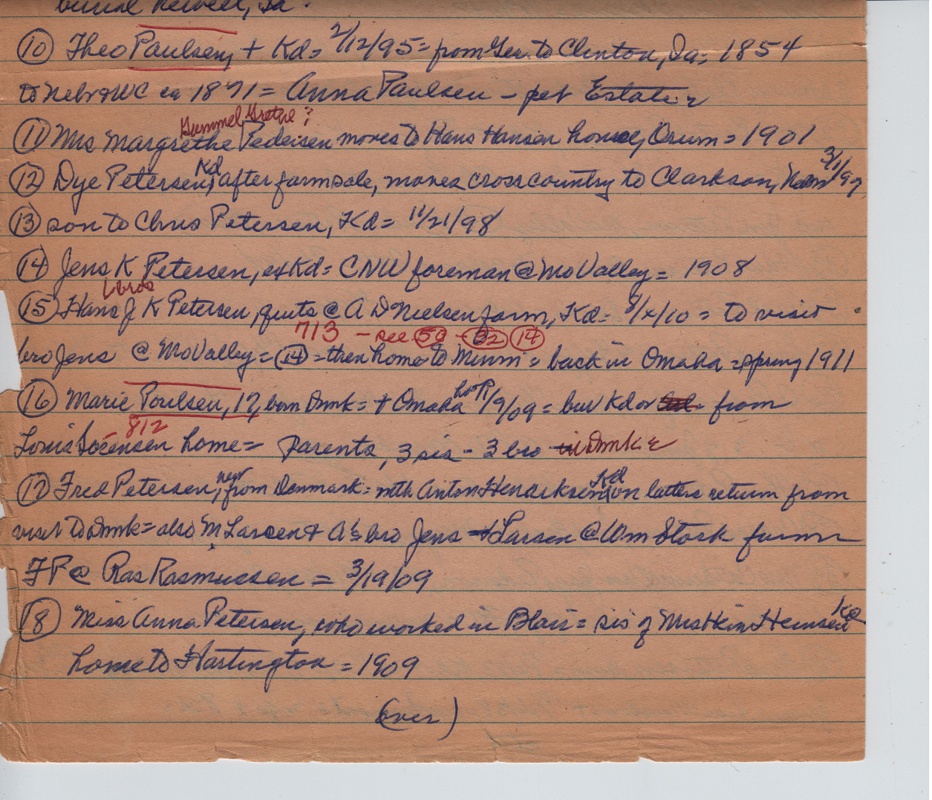 burial Newell, Ia.
⑩ Theo Paulsen, + Kd = 2/12/95 = from Ger. to Clinton, Ia = 1854
to Nebr & WC ca 1871 = Anna Paulsen - pet Estate
Gummel Gretje ?
⑪ Mrs Margrethe Pedersen moves to Hans Hansen home, Orum = 1901
⑫ Dye Petersen, Kd, after farm sale, moves cross country to Clarkson, 3/1/97
⑬ son to Chris Petersen, Kd = 11/21/98
⑭ Jens K Petersen, ex Kd = CNW foreman @ Mo Valley = 1908
bros
⑮ Hans J K Petersen, quits @ A D Nielsen farm, Kd = to visit
713 - see 59 - 32 14
bro Jens @ Mo Valley = ⑭ = then home to Minn = back in Omaha = spring 1911
⑯ Marie Poulsen, 17, born Dmk = + Omaha hosp 1/9/09 = bur Kd or from
812
Louis Sorensen home = parents, 3 sis - 3 bro in Dmk
⑰ Fred Petersen, new from Denmark = with Anton Henricksen, Kd on latters return from
visit to Dmk = also M Larsen + A's bro Jens + Larsen @ Wm Stork farm
FP @ Ras Rasmussen = 3/19/09
⑱ Miss Anna Petersen, who worked in Blair = sis of Mrs Hein Kd
home to Hartington = 1909
(over)